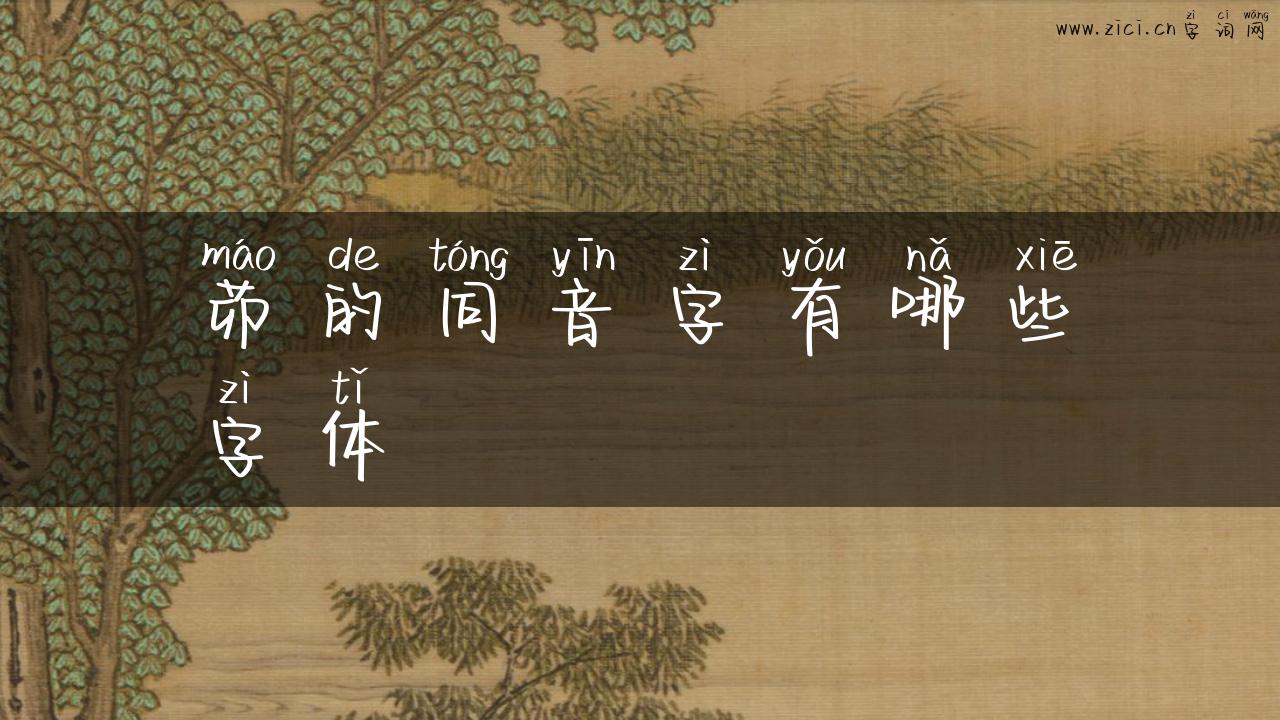 zì cí wǎng
www.zici.cn字词网
máo de tóng yīn zì yǒu nǎ xiē
茆的同音字有哪些
zì tǐ
字体